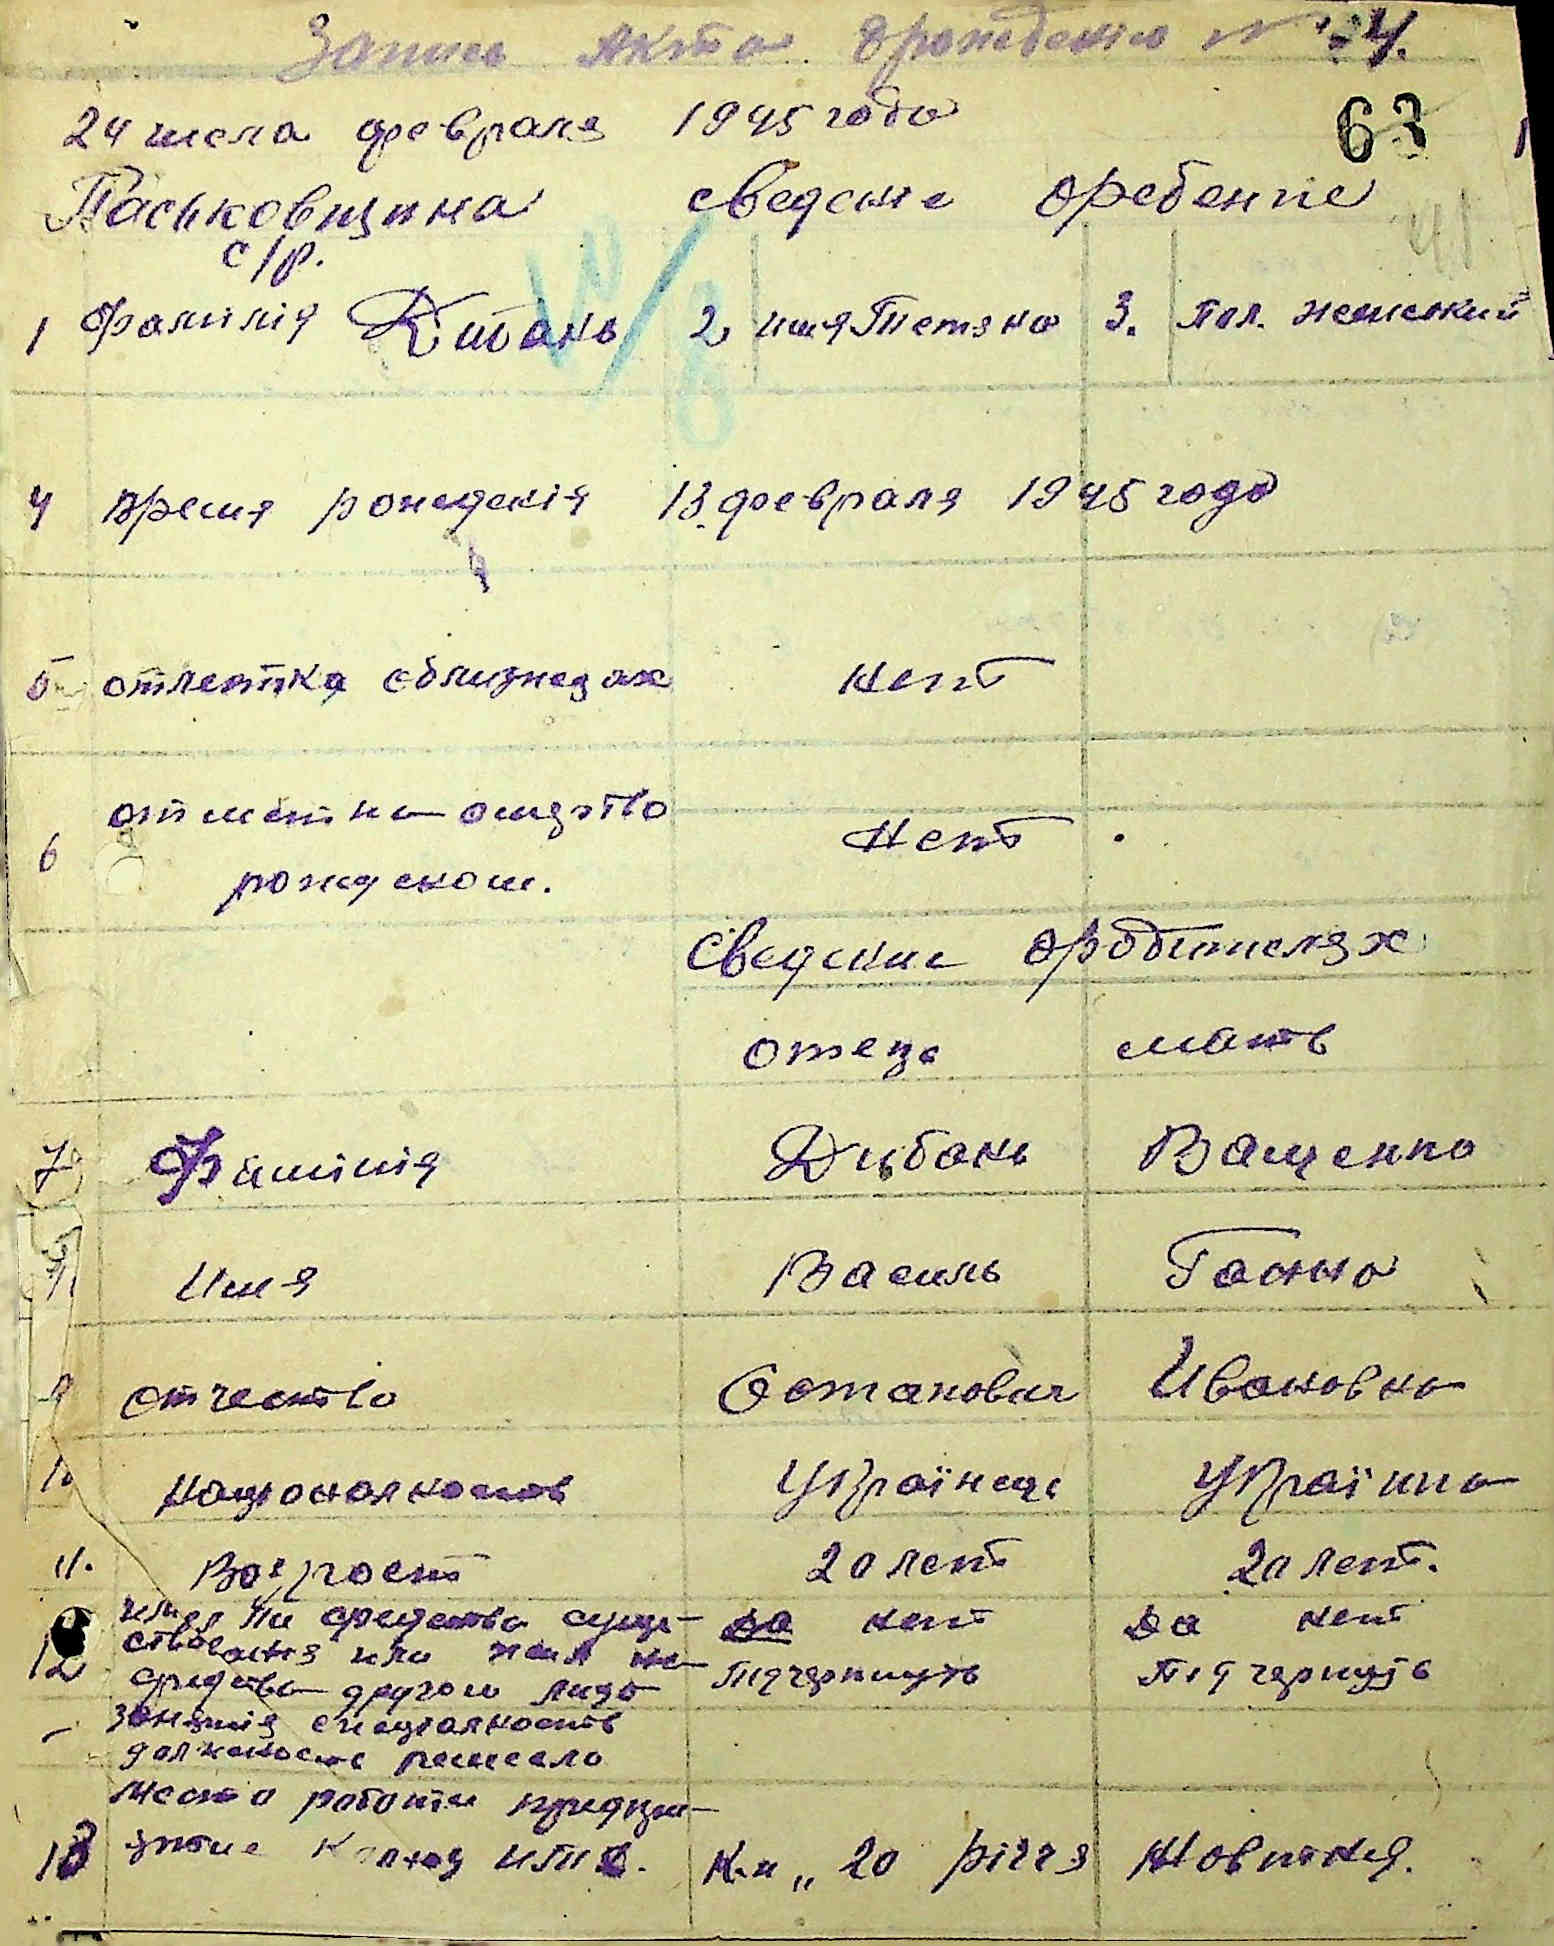 Запись Акта орождению N 4.
24 числа февраля 1945 года
63
Паськовщина сведение оребенпе
с/р.
1 Фамилія Дибань 2 имя Тетяна 3. Пол. женский
4 время рождения 13 февраля 1945 года
5 отметка облизнецах нет
6 отметка омертво нет
рожденом.
Сведение ородителях
отець мать
7 Фамілія Дибань Ващенко
Имя Василь Ганна
9 отчество Остапович Ивановна
10 национальность Українець Українка
11. Возраст 20 лет 20 лет.
12 имел ли средства суще- да нет да нет
ствования или жил на
средства другого лица Підчеркнуть Підчеркнуть
занятия специальность
должность ремесло
место работи предпри-
13 ятие Колхоз итд. К-п „ 20 річчя Жовтня.